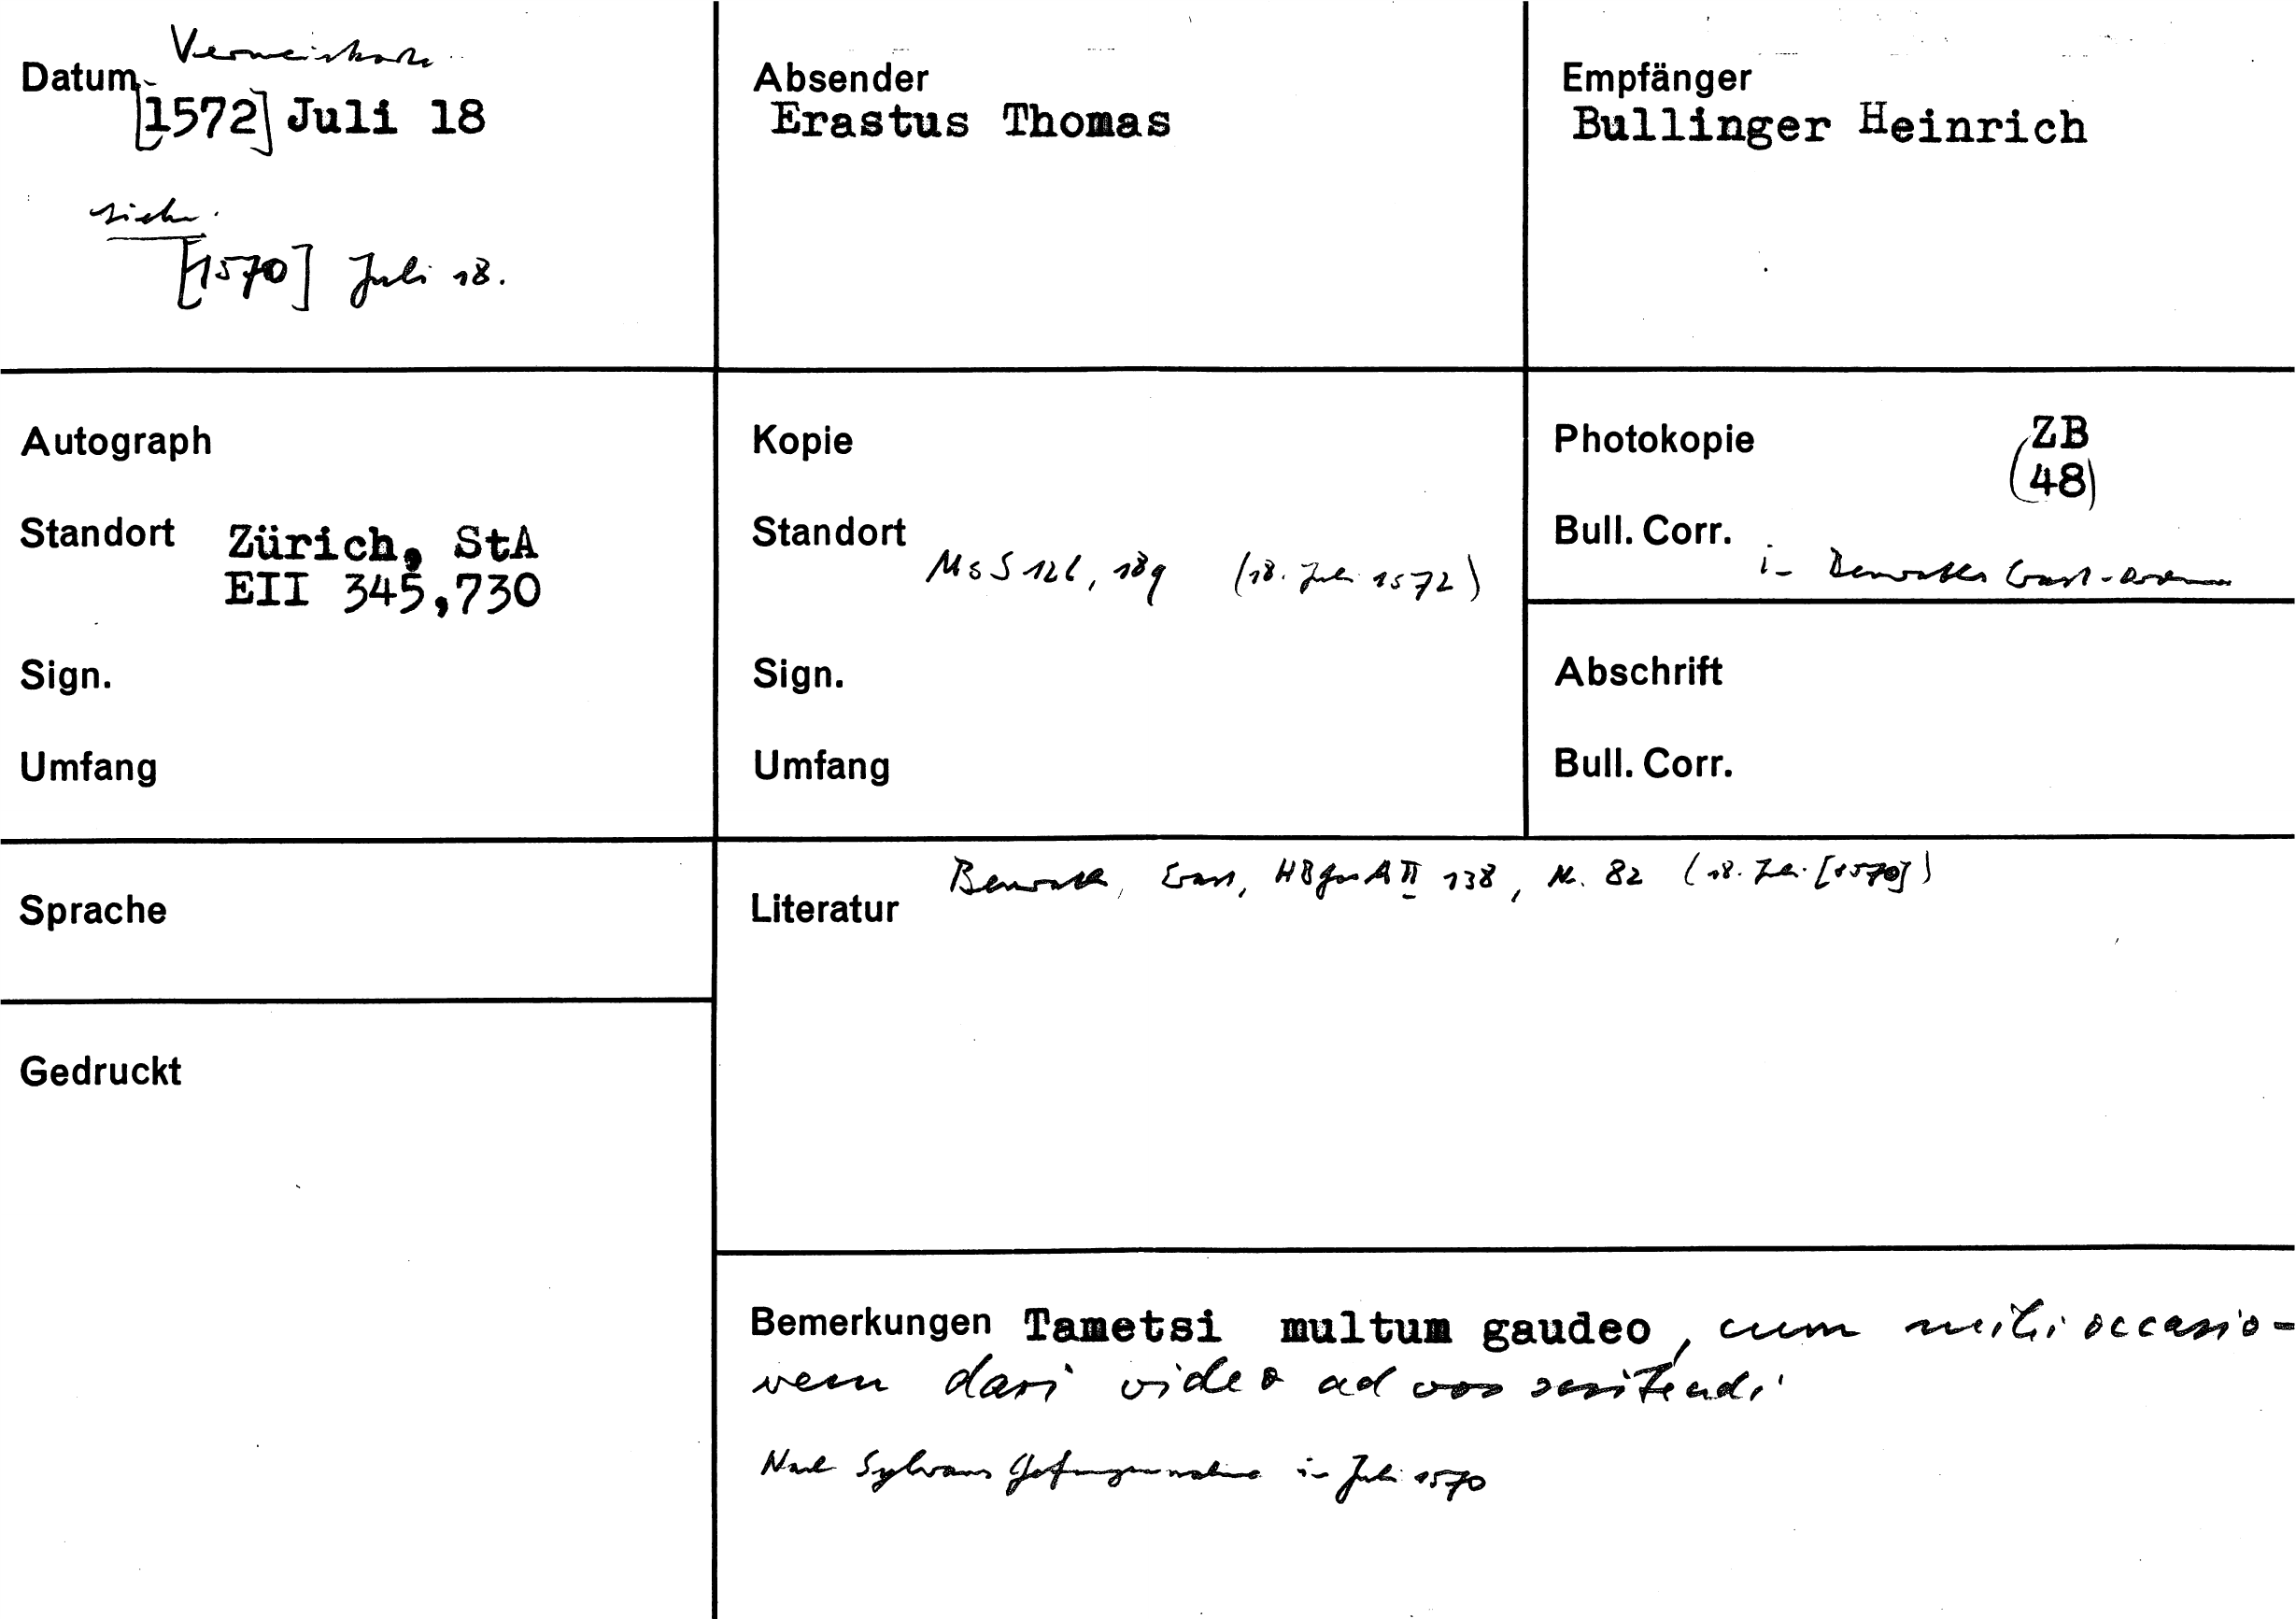 Verweiskarte
Datum
[1572] Juli 18
siehe
[1570] Juli 18.
Absender
Erastus Thomas
Empfänger
Bullinger Heinrich
Autograph
Standort Zürich, StA
EII 345,730
Sign.
Umfang
Kopie
Standort
Ms S 126, 189 (18. Juli 1572)
Sign.
Umfang
Photokopie ZB
(48)
Bull. Corr.
in Benraths Erast-
Abschrift
Bull. Corr.
Sprache
Gedruckt
Benrath, Erast, HBGesA II 138, Nr. 82 (18. Juli [1570])
Literatur
Bemerkungen Tametsi multum gaudeo, cum mihi occasio=
nem dari video ad vos scribendi
Nach Sylvans Gefangennahme in Juli 1570